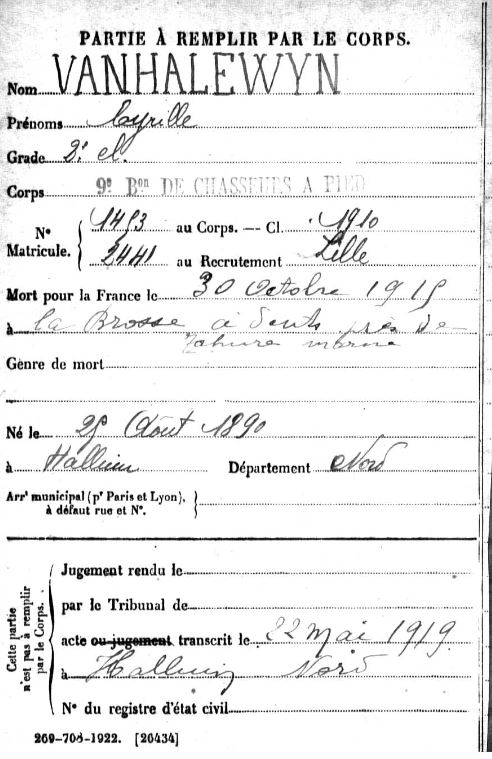 PARTIE À REMPLIR PAR LE CORPS.
Nom VANHALEWYN
Prénoms Cyrille
Grade 2e cl.
Corps 9e Bon DE CHASSEURS A PIED
No Matricule. { 1453 au Corps. — Cl. 1910
2441 au Recrutement Lille
Mort pour la France le 30 Octobre 1915
à la Brosse à Dents près de
Tahure Marne
Genre de mort
Né le 25 Août 1890
à Halluin Département Nord
Arrt municipal (pr Paris et Lyon),
à défaut rue et No.
Cette partie n'est pas à remplir par le Corps.
Jugement rendu le
par le Tribunal de
acte ou jugement transcrit le 22 Mai 1919
à Halluin Nord
No du registre d'état civil
269-708-1922. [26434]